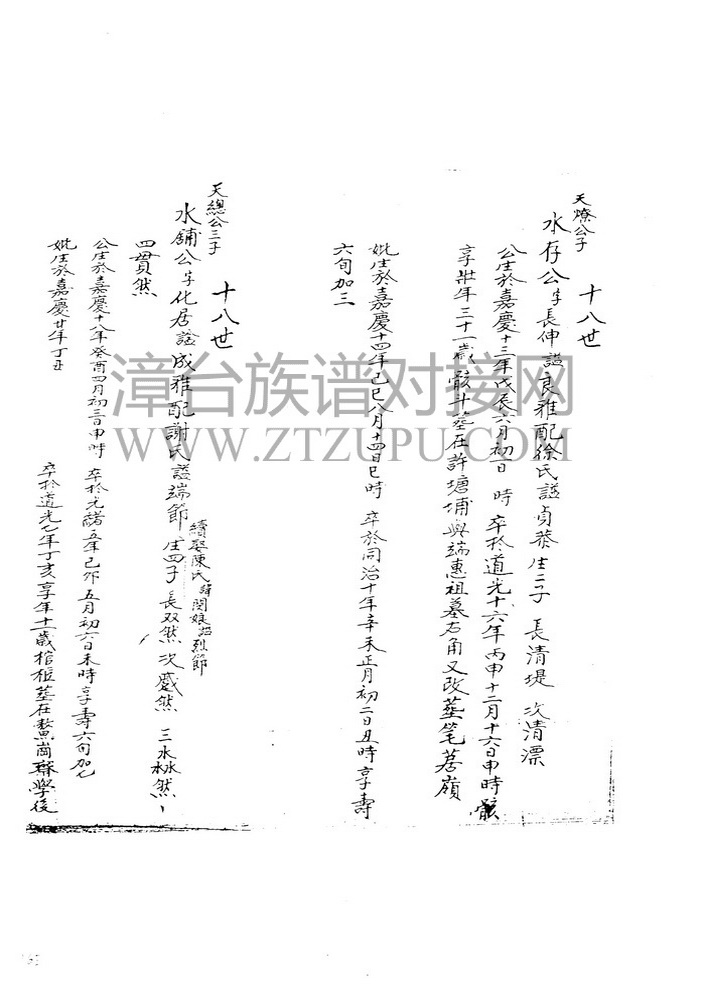 十八世
天燎公子
水存公字長伸諡良雅配徐氏諡貞恭生二子 長清堤 次清漂
公生於嘉慶十三年戊辰六月初一日 時 卒於道光十六年丙申十二月十六日申時骸
享卅年三十一歲骸斗墓在許塘埔與端惠祖墓右角又改葬笔苤嶺
妣生於嘉慶十四年己巳八月十四日巳時 卒於同治十年辛未正月初二日丑時享壽
六旬加三
十八世
天總公三子
水鋪公字化居諡成雅配謝氏諡端節生四子長双然次盛然 三水淼然
續娶陳氏諱閔娘諡烈節
四貫然
公生於嘉慶十八年癸酉四月初三日申時 卒於光緒五年己卯五月初六日未時享壽六旬加七
妣生於嘉慶廿年丁丑 卒於道光七年丁亥享年十一歲棺柩葬在鰲崗學後
漳台族谱对接网
WWW.ZTZUPU.COM